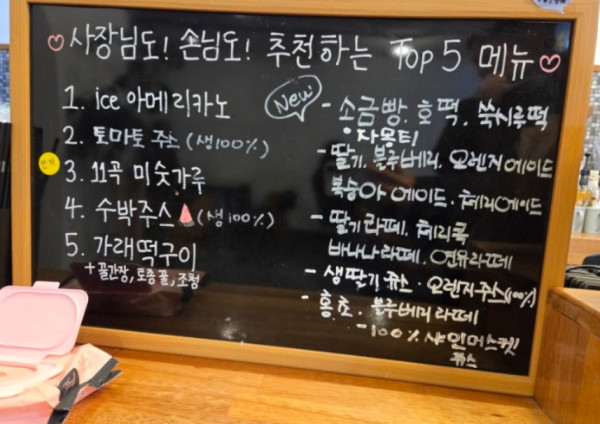 사장님도! 손님도! 추천하는 Top 5 메뉴
1. ice 아메리카노
2. 토마토 주스 (생100%)
3. 11곡 미숫가루
4. 수박주스 (생100%)
5. 가래떡구이
+ 꿀간장, 토종꿀, 조청
New
- 소금빵. 호떡. 쑥시루떡
자몽티
- 딸기. 블루베리. 오렌지에이드
복숭아 에이드. 체리에이드
- 딸기라떼. 체리콕
바나나라떼. 연유라떼
- 생딸기쥬스. 오렌지주스(100%)
- 홍초. 블루베리라떼
- 100% 샤인머스켓
쥬스